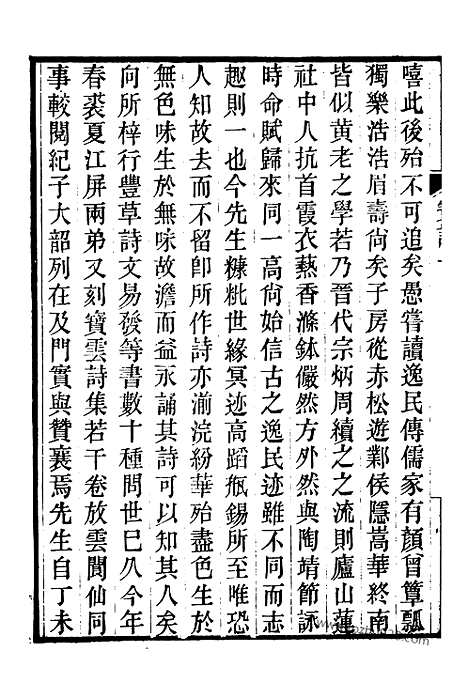 嘻此後殆不可追矣愚嘗讀逸民傳儒家有顏曾簞瓢
獨樂浩浩眉壽尙矣子房從赤松遊鄴侯隱嵩華終南
皆似黃老之學若乃晉代宗炳周續之之流則廬山蓮
社中人抗首霞衣爇香滌鉢儼然方外然與陶靖節詠
時命賦歸來同一高尙始信古之逸民迹雖不同而志
趣則一也今先生糠粃世緣冥迹高蹈甁錫所至唯恐
人知故去而不留卽所作詩亦湔浣紛華殆盡色生於
無色味生於無味故澹而益永誦其詩可以知其人矣
向所梓行豐草詩文易發等書數十種問世巳久今年
春裘夏江屏兩弟又刻寶雲詩集若干卷放雲閒仙同
事較閱紀子大韶列在及門實與贊襄焉先生自丁未